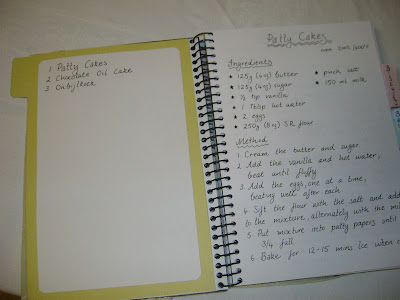 1 Patty Cakes
2. Chocolate Oil Cake
3.
Patty Cakes
Ingredients
★ 125g (4oz) butter
★ 125g (4oz) sugar
★ ½ tsp vanilla
★ 1 Tbsp hot water
★ 2 eggs
★ 250g (8oz) SR flour
★ pinch salt
★ 150 ml milk
Method
1. Cream the butter and sugar
2. Add the vanilla and hot water,
beat until fluffy
3. Add the eggs, one at a time,
beating well after each
4. Sift the flour with the salt and add
to the mixture, alternately with the
5. Put mixture into patty papers until
3/4 full
6. Bake for 12-15 mins. Ice when